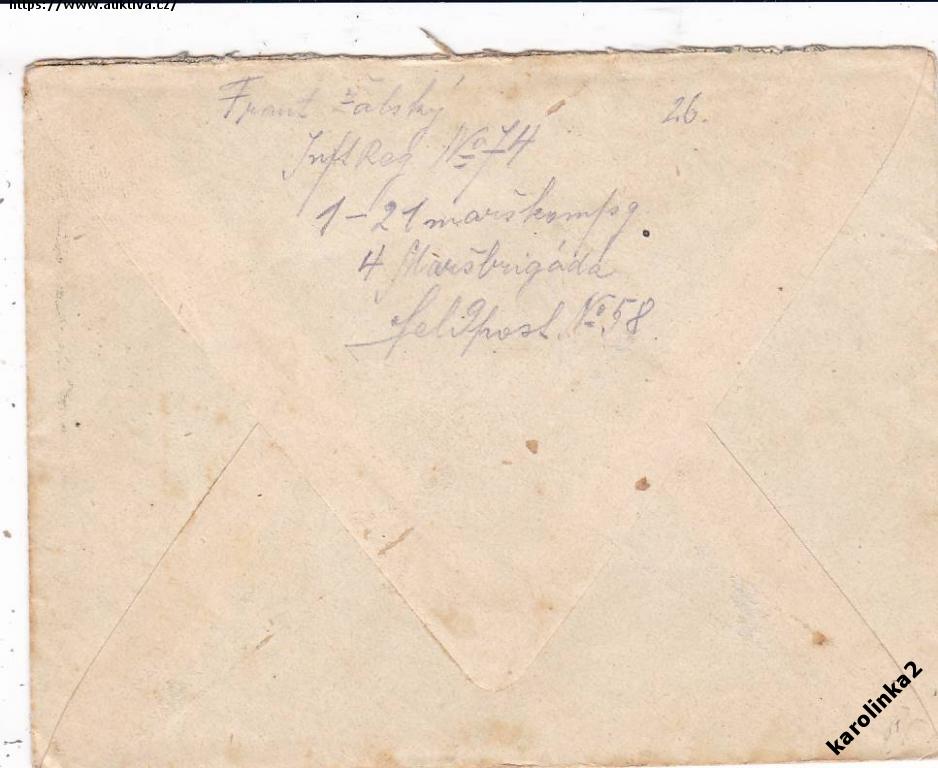 https://www.auktiva.cz/
Frant Žabský
26.
Inft Reg No 74
1-21 marškompg.
4 Maršbrigáda
Feldpost No 58
karolinka2